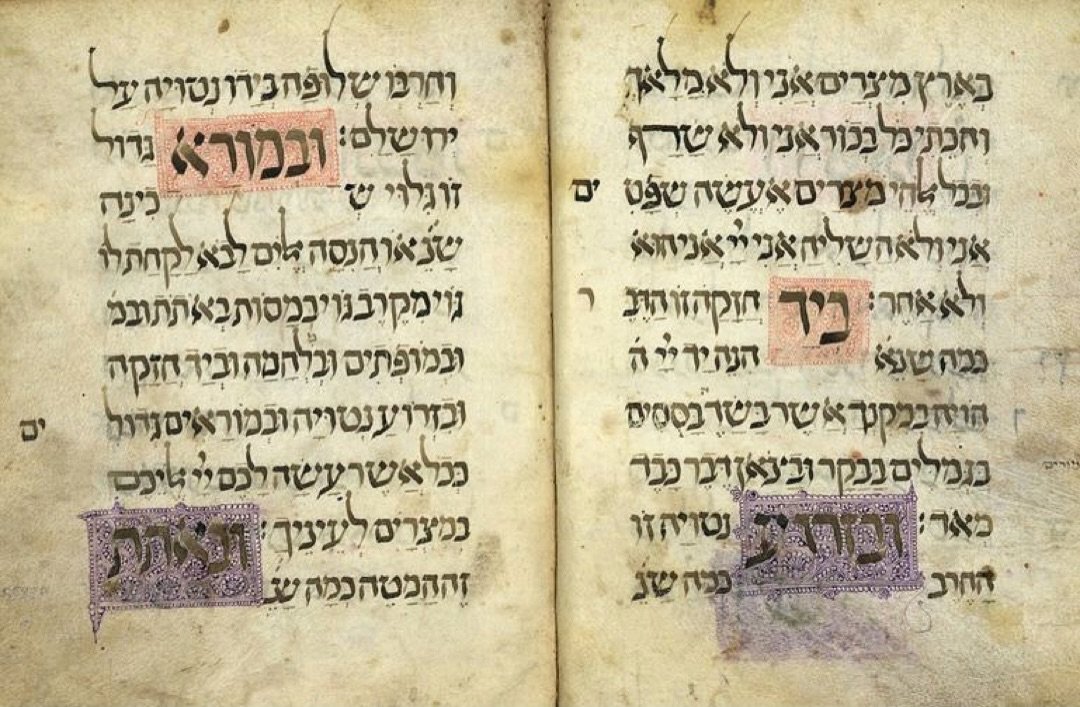 בארץ מצרים אני ולא מלאך
והכתי כל בכור אני ולא שרף
ובכל אלהי מצרים אעשה שפט ים
אני ולא השליח אני ייי אני הוא
ולא אחר: ביד חזקה זו הדב ר
כמה שנא הנה יד ייי ה
הויה במקנך אשר בשד בססים
בגמלים בבקר ובצאן דבר כבד
מאד: ובזרוע נטויה זו
החרב כמה שנ
וחרבו שלופה בידו נטויה על
ירושלם: ובמורא גדול
זו גלוי ש כינה
שנא או הנסה אלים לבא לקחת לו
גוי מקרב גוי במסות באתת ובמ
ובמופתים ובלחמה וביד חזקה
ובזרוע נטויה ובמוראים גדול ים
ככל אשר עשה לכם ייי אליכם
במצרים לעיניך: ובאתת
זה המטה כמה שנ